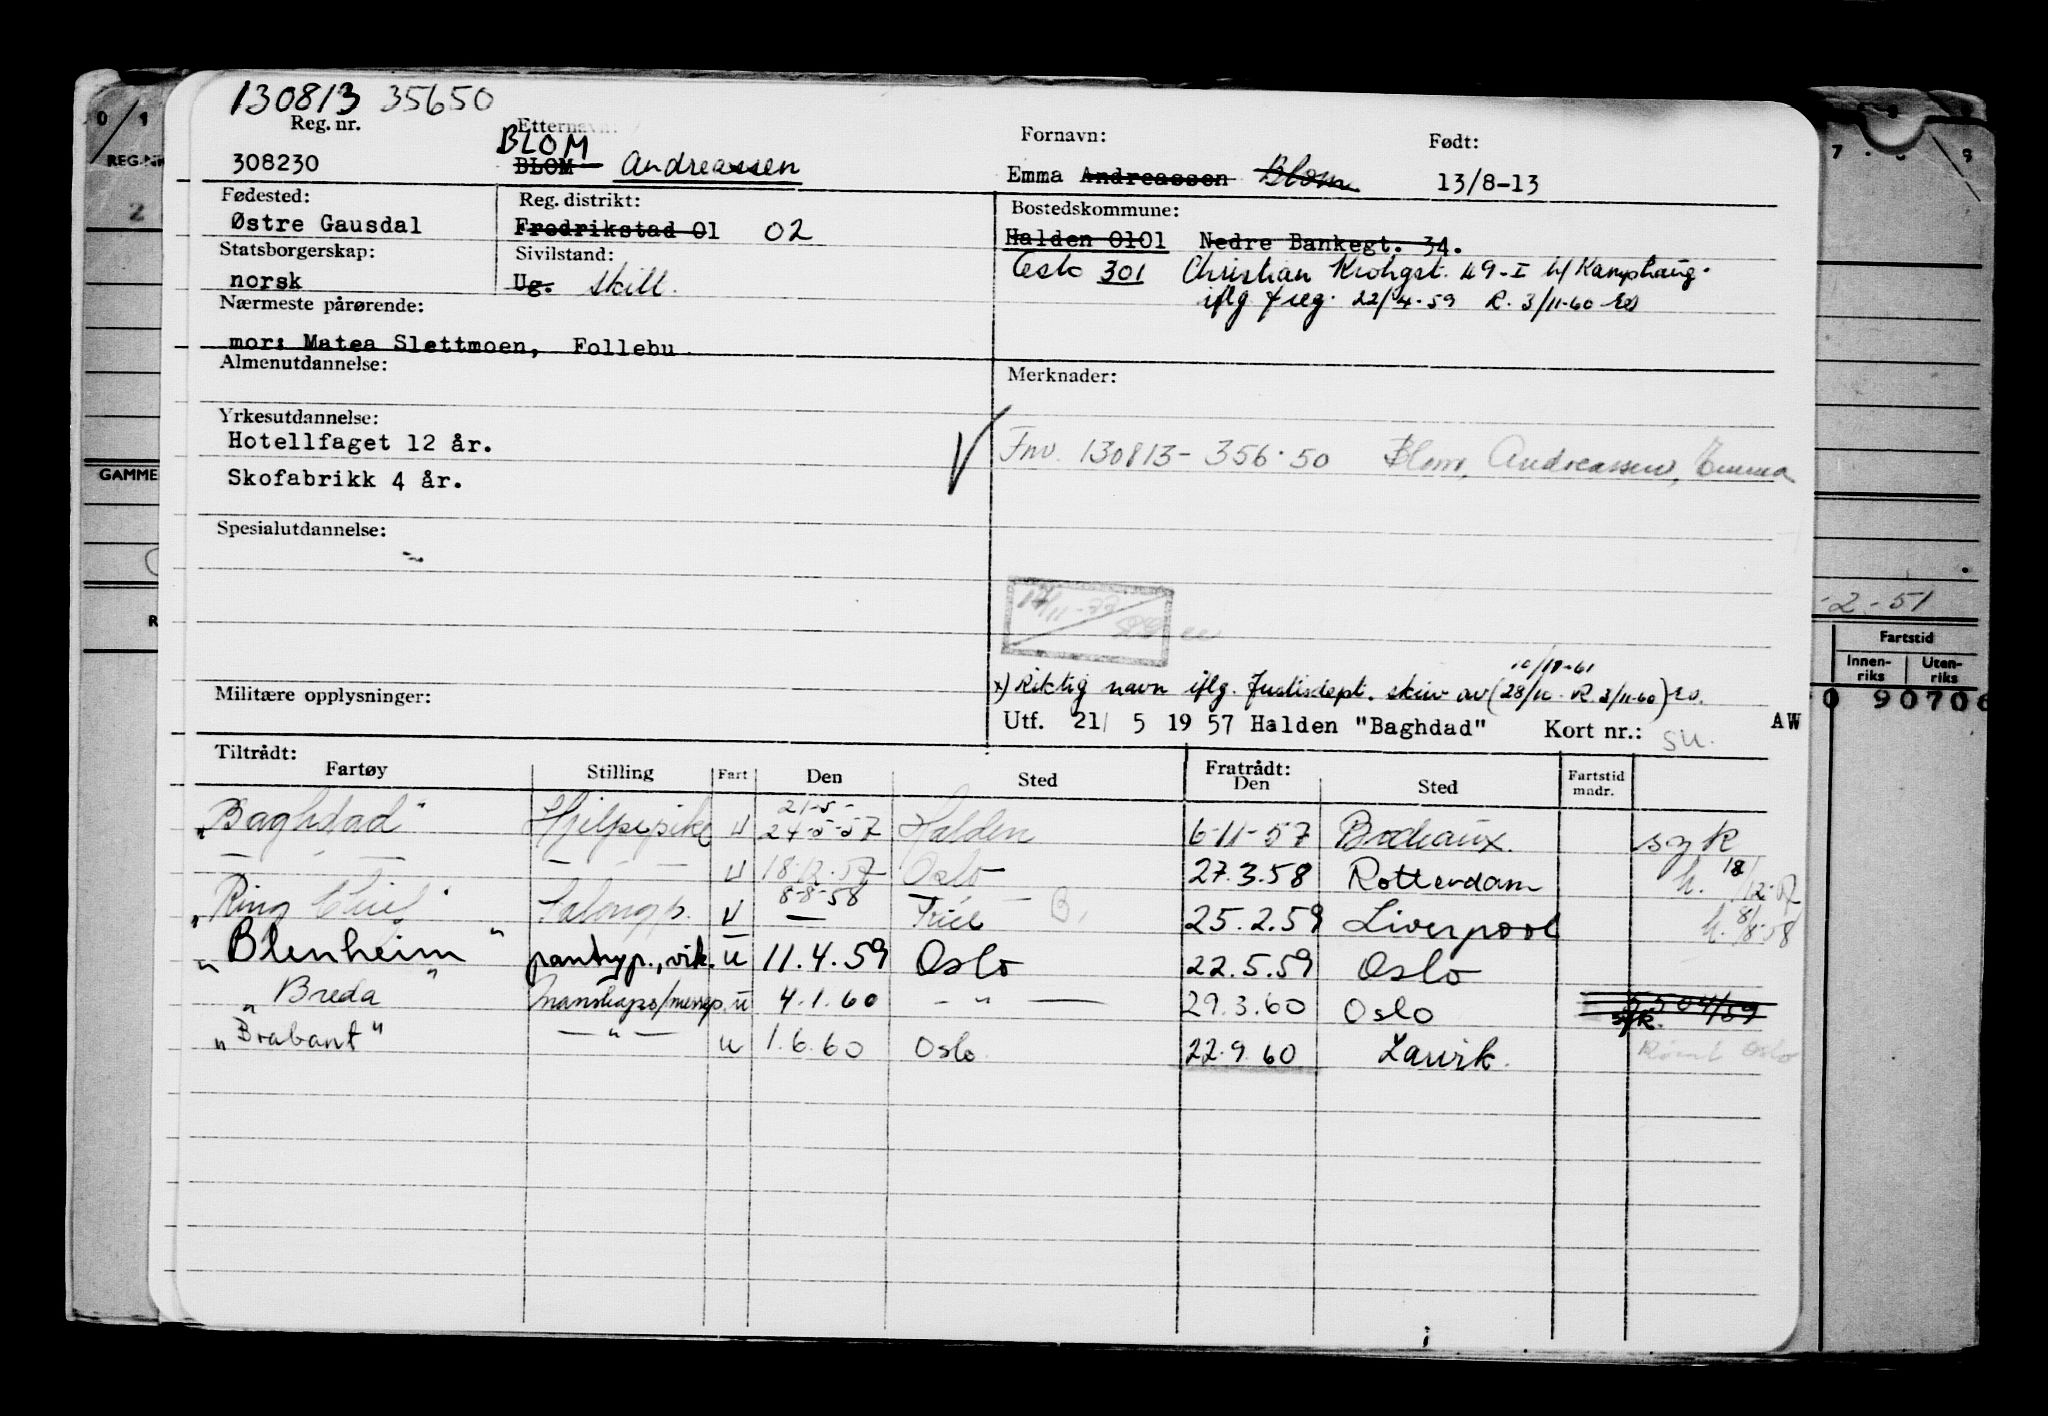 130813 35650
Reg. nr. Etternavn: Fornavn: Født:
BLOM
308230 BLOM Andreassen Emma Andreassen Blom 13/8-13
Fødested: Reg. distrikt: Bostedskommune:
Østre Gausdal Fredrikstad 01 02 Halden 0101 Nedre Bankegt. 34.
Statsborgerskap: Sivilstand: Oslo 301 Christian Krohgst. 49-I b/ Kamphaug.
norsk Ug. skilt. iflg freg. 22/4-59 R. 3/11-60
Nærmeste pårørende:
mor: Matea Slettmoen, Follebu
Almenutdannelse: Merknader:
Yrkesutdannelse:
Hotellfaget 12 år. Fnr. 130813-356.50 Blom, Andreassen, Emma
Skofabrikk 4 år.
Spesialutdannelse:
10/11-61
x) Riktig navn iflg. Justisdept. skriv av (28/10. R. 3/11-60)
Militære opplysninger:
Utf. 21/ 5 19 57 Halden "Baghdad" Kort nr.: su. AW
Tiltrådt: Fratrådt:
Fartøy Stilling Fart Den Sted Den Sted Fartstid mndr.
21-5-
"Baghdad" Hjelpepike U 24-5-57 Halden 6-11-57 Bordeaux. syk
— — — — — — U 18.12.57 Oslo 27.3.58 Rotterdam h. 18/12-57
8-8-58
"Ring Chief" Salongp. U — 25.2.59 Liverpool h. 8/8-58
"Blenheim" pantryp., vik. u 11.4.59 Oslo 22.5.59 Oslo
"Breda" Mannskaps/messep. u 4.1.60 — " — 29.3.60 Oslo syk.
"Brabant" — " — u 1.6.60 Oslo 22.9.60 Larvik. Rømt Oslo
REG-NR
GAMME
-2.-51
Fartstid
Innen-riks Uten-riks
0 90706